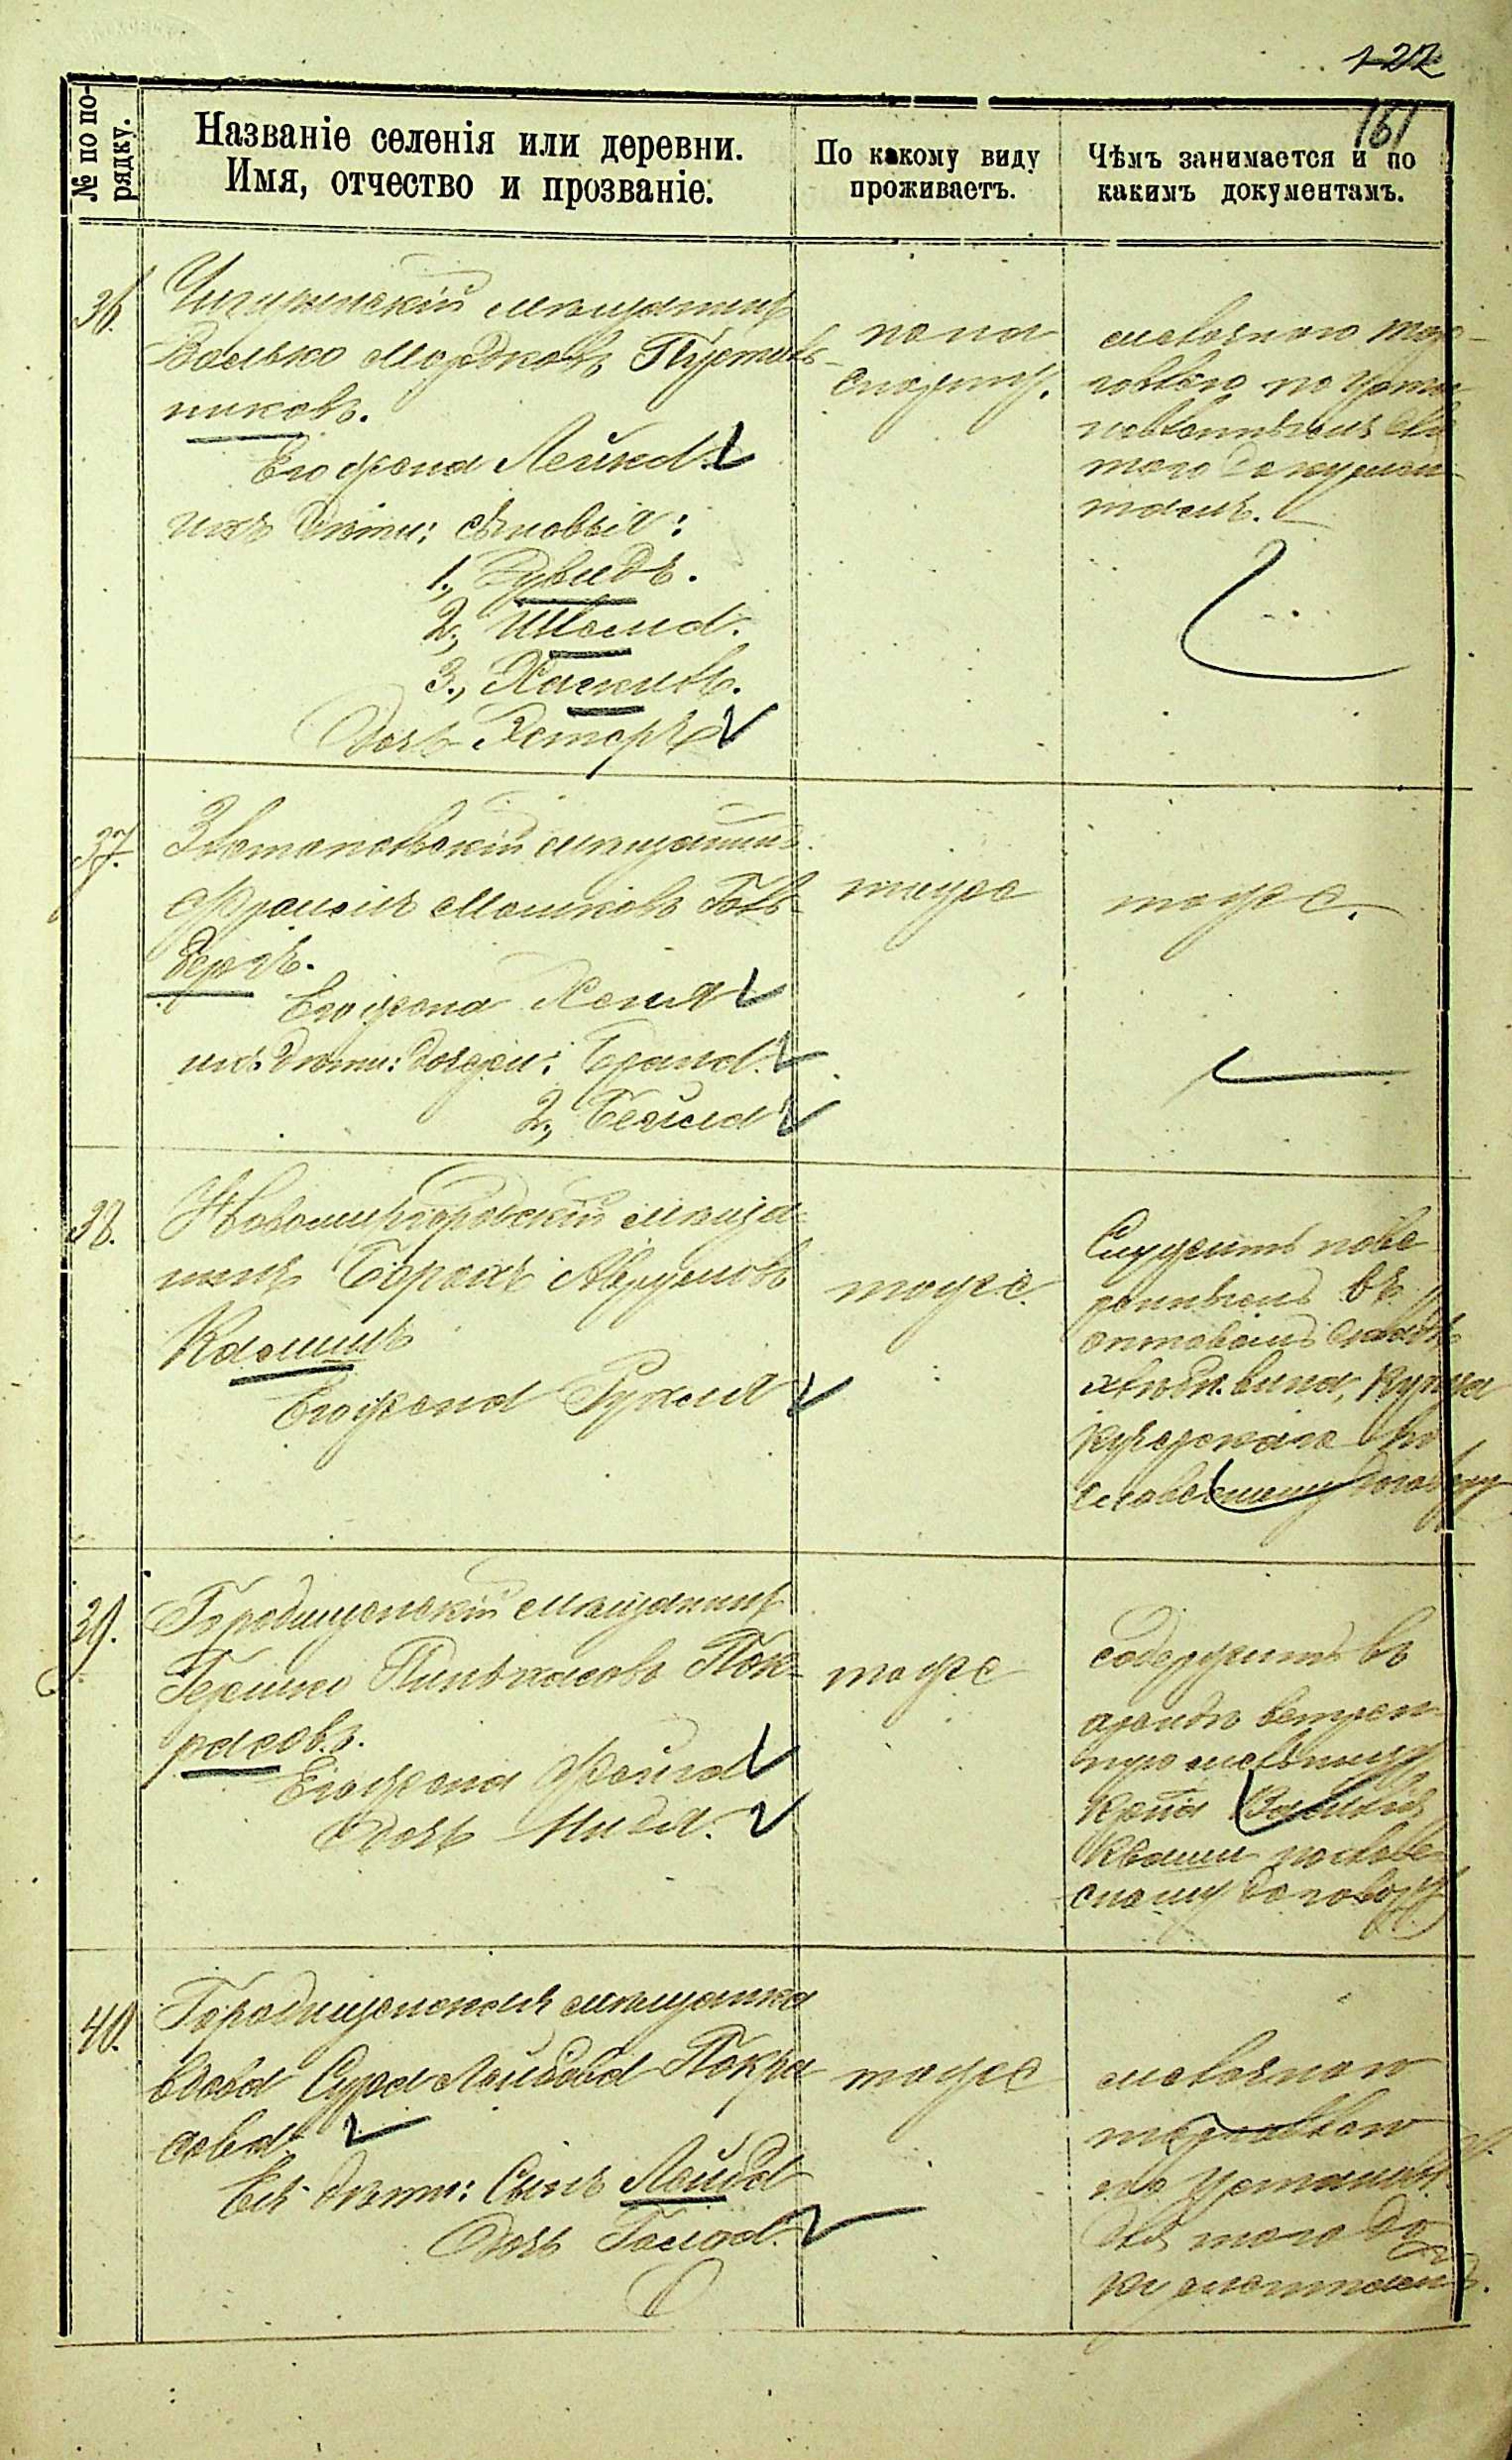 122
161
№ по по-
рядку.
Названіе селенія или деревни.
Имя, отчество и прозваніе.
По какому виду
проживаетъ.
Чѣмъ занимается и по
какимъ документамъ.
36.
Чигиринскій мѣщанинъ
Волько Мордковъ Пустиль-
никовъ.
Его жена Лейка.
ихъ дѣти: сыновья:
1., Дувидъ.
2,
3.,
Дочь Эстеръ
по па
спорту.
мелочною тор-
говлею по уста-
новленнымъ для
того докумен-
тамъ.
37.
мѣщанинъ
Мошковъ Голь-
Его жена Хеня
ихъ дѣти: дочери: Брана.
2, Бейла
тоже
тоже.
38.
Новомиргородскій мѣща-
нинъ Борохъ Аврумовъ
Его жена Рухля
тоже.
Служитъ пове
реннымъ въ
оптовомъ складѣ
вина, купца
по
словесному договору
39.
Городищенскій мѣщанинъ
Гершко Пинькасовъ Пок-
расовъ.
Его жена Фейга
Дочь
тоже
содержитъ въ
арендѣ вѣтрен-
ную мельницу
по слове-
сному договору
40.
Городищенская мѣщанка
вдова Сура Лейбова Покра
сова
Ея дѣти: Сынъ Лейба
Дочь Голда.
тоже
мелочною
торговлею
по установл.
для того до-
кументамъ.